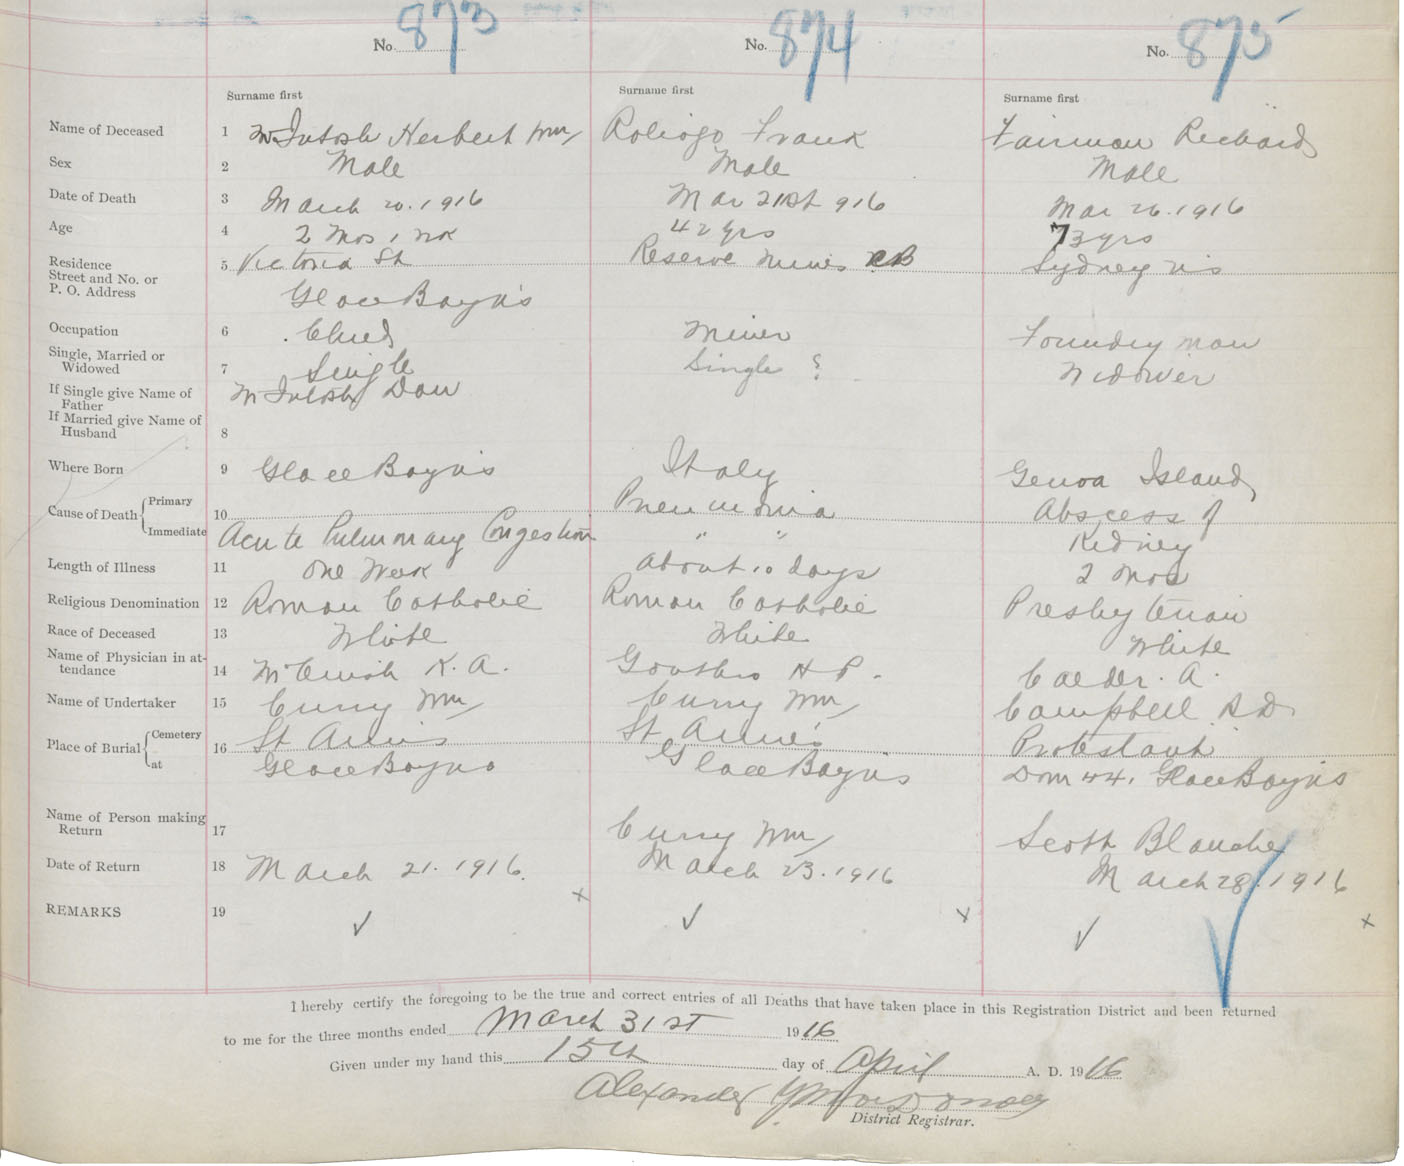 No. 873 No. 874 No. 875
Surname first Surname first Surname first
Name of Deceased 1 McIntosh Herbert Wm Frank Fairman Richard
Sex 2 Male Male Male
Date of Death 3 March 20. 1916 Mar 21st 916 Mar 26. 1916
Age 4 2 Mos 1 Wk 42 yrs 73 yrs
Residence
Street and No. or
P. O. Address
5 Victoria St Reserve Mines CB Sydney NS
Glace Bay NS
Occupation 6 Child Miner Foundry man
Single, Married or
Widowed
7 Single Single ? Widower
If Single give Name of
Father
McIntosh Dan
If Married give Name of
Husband
8
Where Born 9 Glace Bay NS Italy Genoa Island
Cause of Death Primary 10 Pneumonia Abscess of
Immediate Acute Pulmonary Congestion " " Kidney
Length of Illness 11 One Week about 10 days 2 mos
Religious Denomination 12 Roman Catholic Roman Catholic Presbyterian
Race of Deceased 13 White White White
Name of Physician in at-
tendance
14 K. A. H P. Calder. A.
Name of Undertaker 15 Curry Wm Curry Wm Campbell
Place of Burial Cemetery 16 St Anns St Anne's Protestant
at Glace Bay NS Glace Bay NS Dom #4. Glace Bay NS
Name of Person making
Return
17 Curry Wm Scott Blanche
Date of Return 18 March 21. 1916. March 23. 1916 March 28. 1916
REMARKS 19
I hereby certify the foregoing to be the true and correct entries of all Deaths that have taken place in this Registration District and been returned
to me for the three months ended March 31st 1916
Given under my hand this 15th day of April A. D. 1916
Alexander
District Registrar.